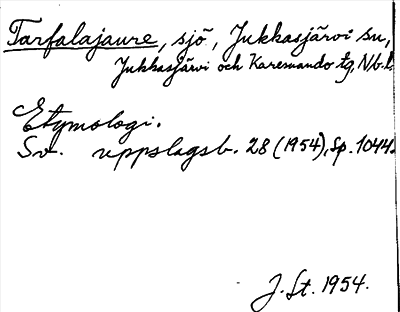 Tarfalajaure, sjö, Jukkasjärvi sn,
Jukkasjärvi och Karesuando tg, Nb.l.
Etymologi.
Sv. uppslagsb. 28 (1954), sp. 1044.
J. St. 1954.